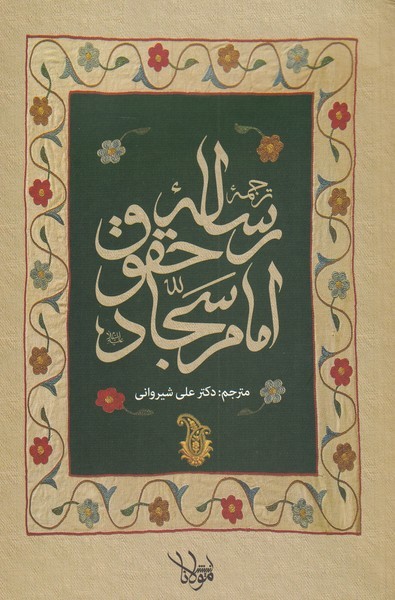 ترجمهٔ
رسالهٔ حقوق
امام سجّاد علیه‌السلام
مترجم: دکتر علی شیروانی
نشر مولانا